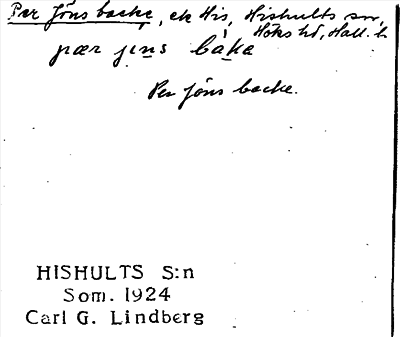 Per Jöns backe, ek His, Hishults sn,
Höks hd, Hall. l.
pær jɵns bàke
Per Jöns backe.
HISHULTS S:n
Som. 1924
Carl G. Lindberg